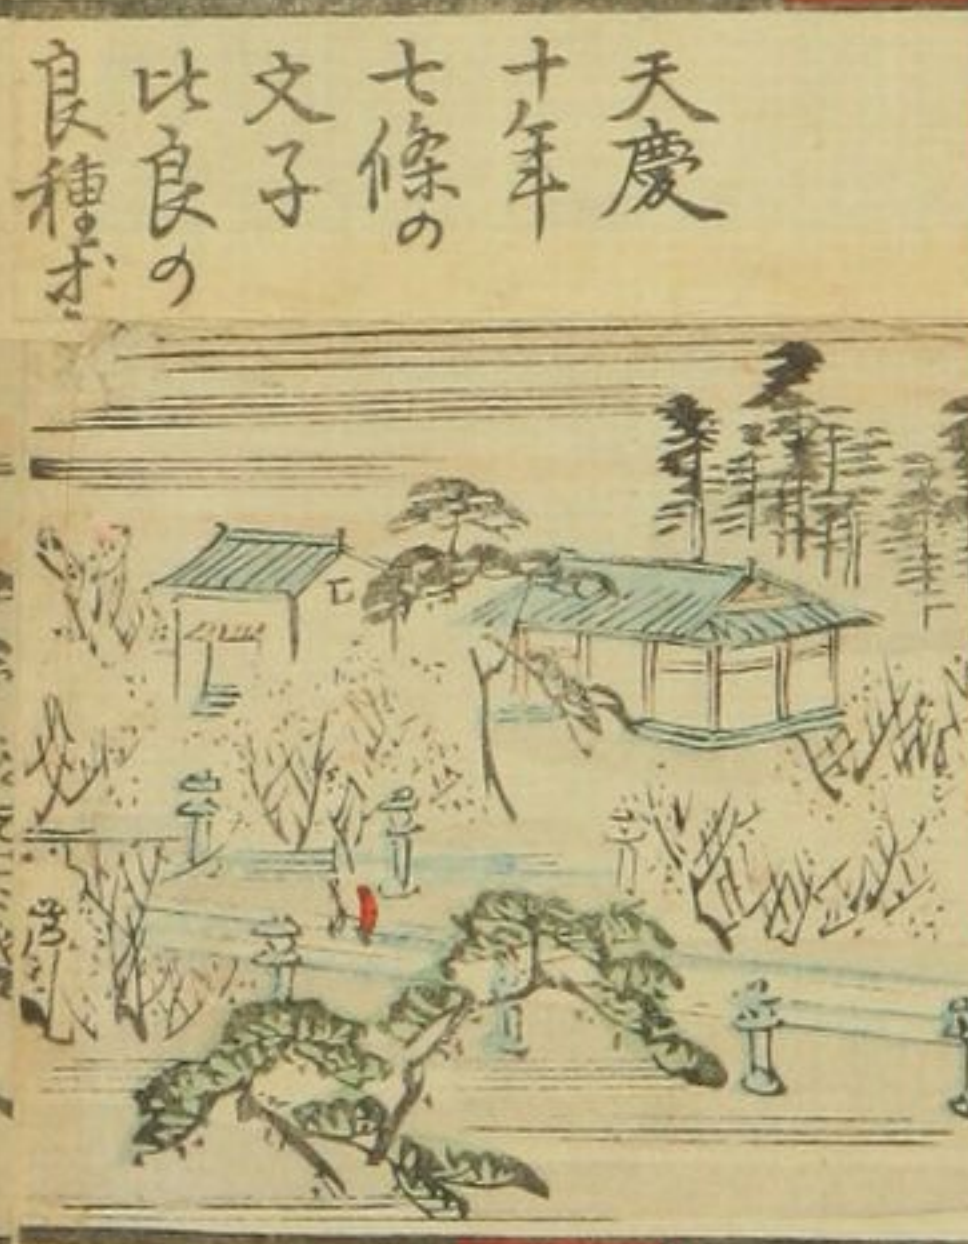 天慶
十年
七條の
文子
比良の
良種